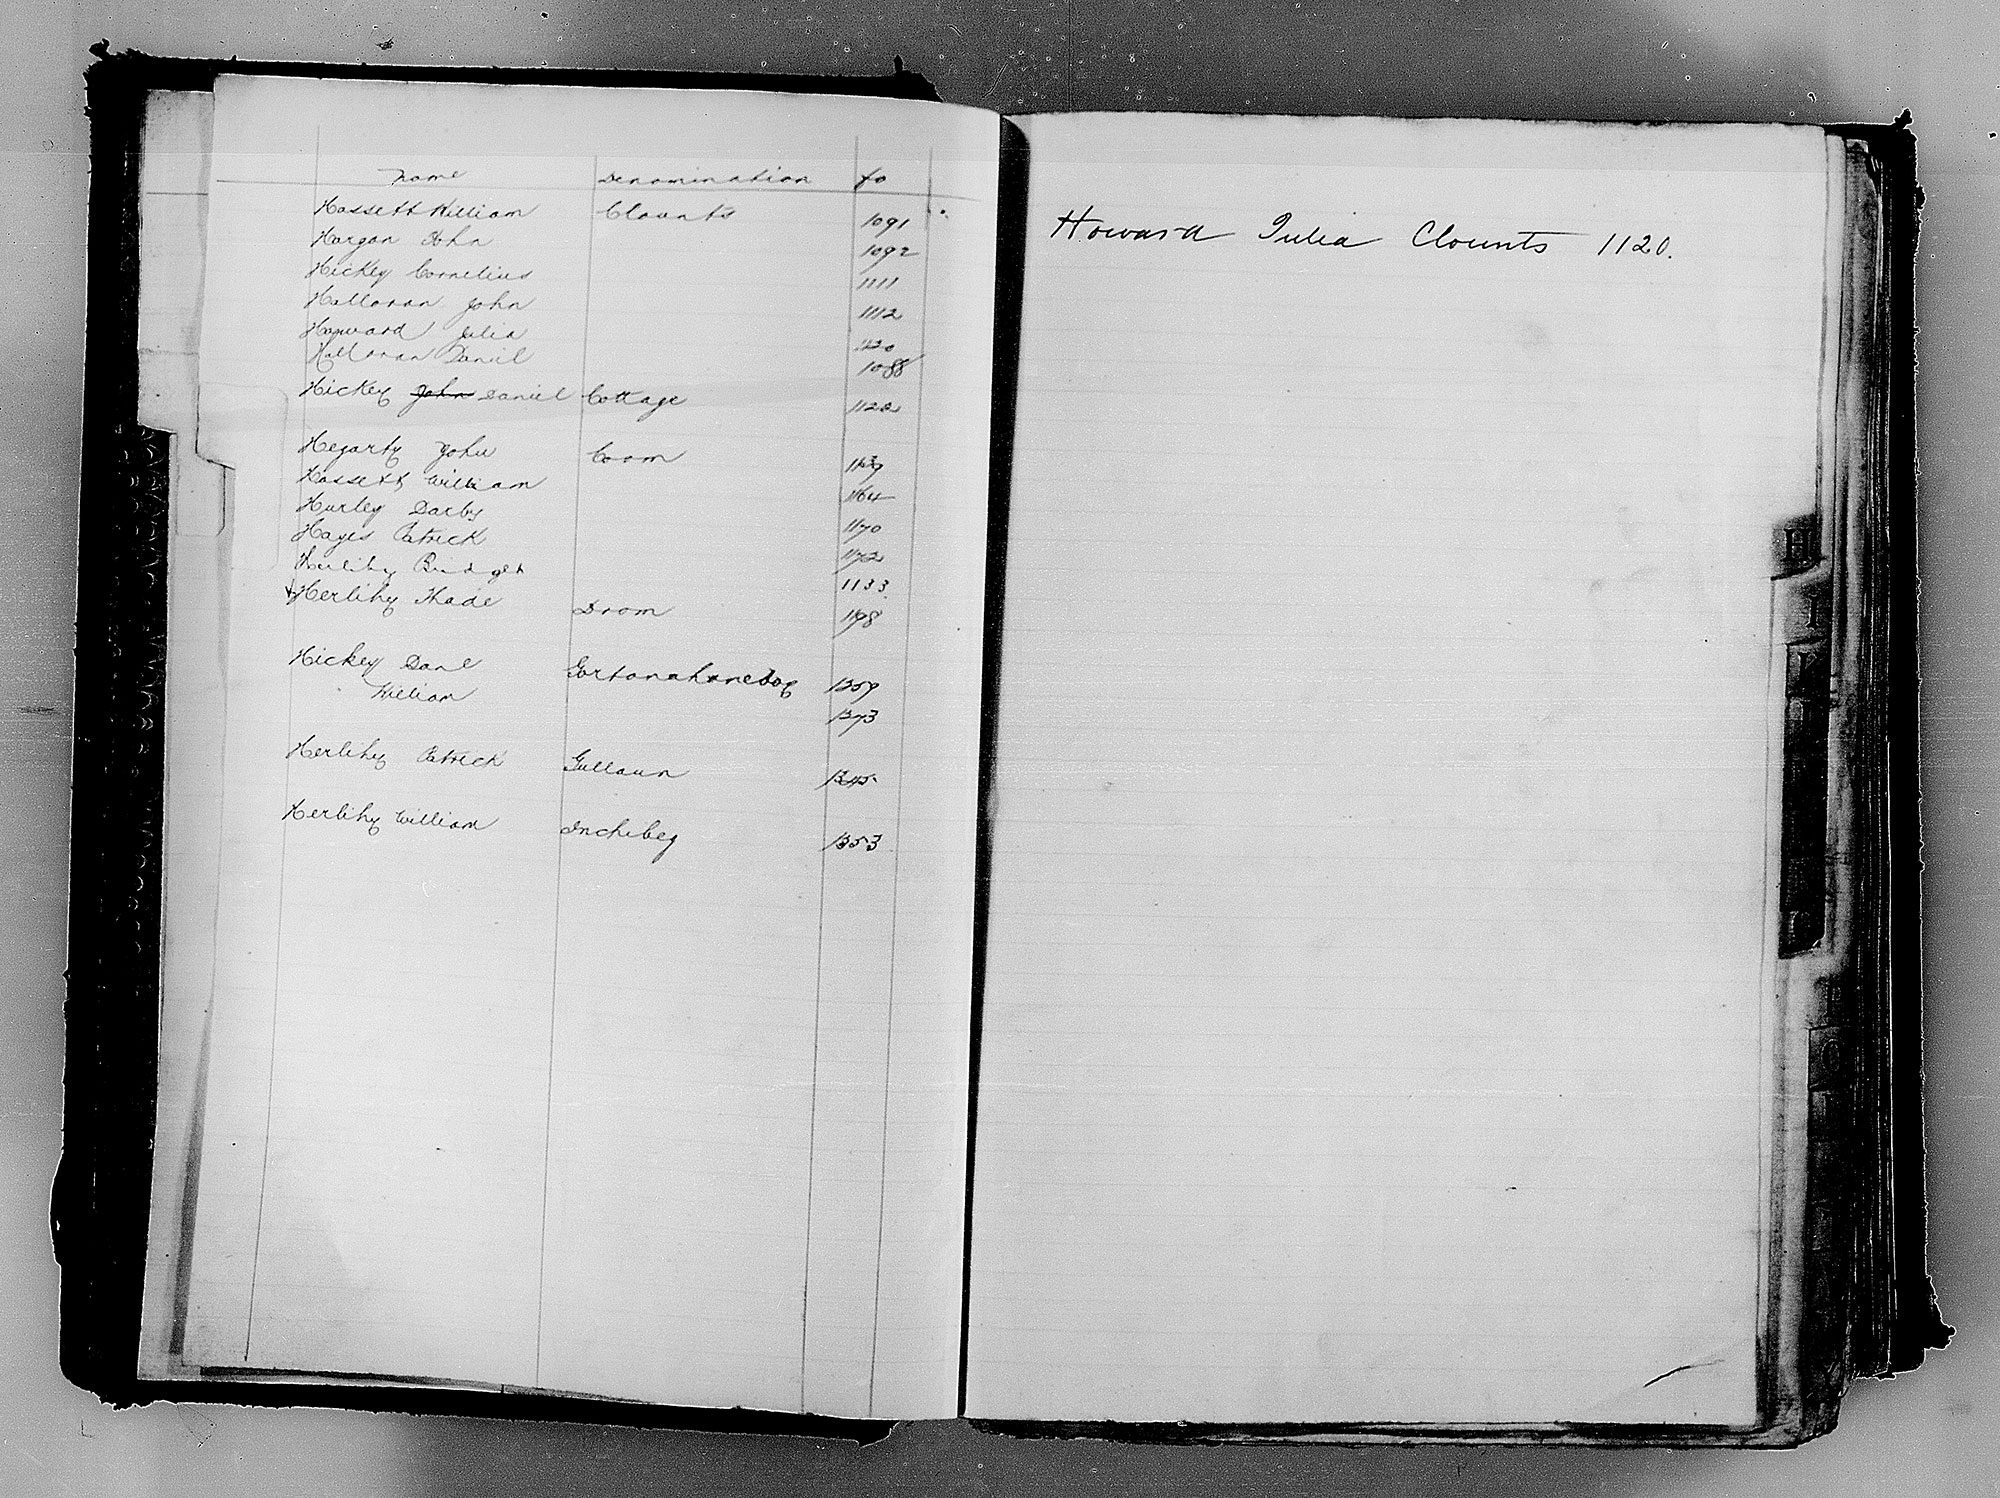 Name Denomination fo
Hassett William Clounts 1091
Horgan John 1092
Hickey Cornelius 1111
Halloran John 1112
Howard Julia 1120
Halloran Daniel 1088
Hickey John Daniel Cottage
Hegarty John Coom 1139
Hassett William 1164
Hurley Darby 1170
Hayes Patrick 1172
Herlihy Bridget 1133
Herlihy Thade Drom 1198
Hickey Danl Gortanahaneboy 1359
William 1373
Herlihy Patrick Gullaun 1345
Herlihy William Inchibeg 1353
Howard Julia Clounts 1120.
H
I
K